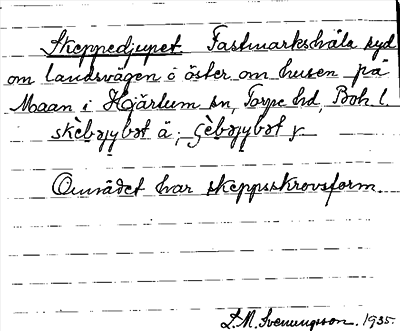 Skeppedjupet Fastmarkshåla syd
om landsvägen o öster om husen på
Maan i Hjärtum sn, Torpe hd, Boh. l.
skèbəjybət ä; ʂèbəjybət y
Området har skeppsskrovsform.
D.M. Svenungsson. 1935.